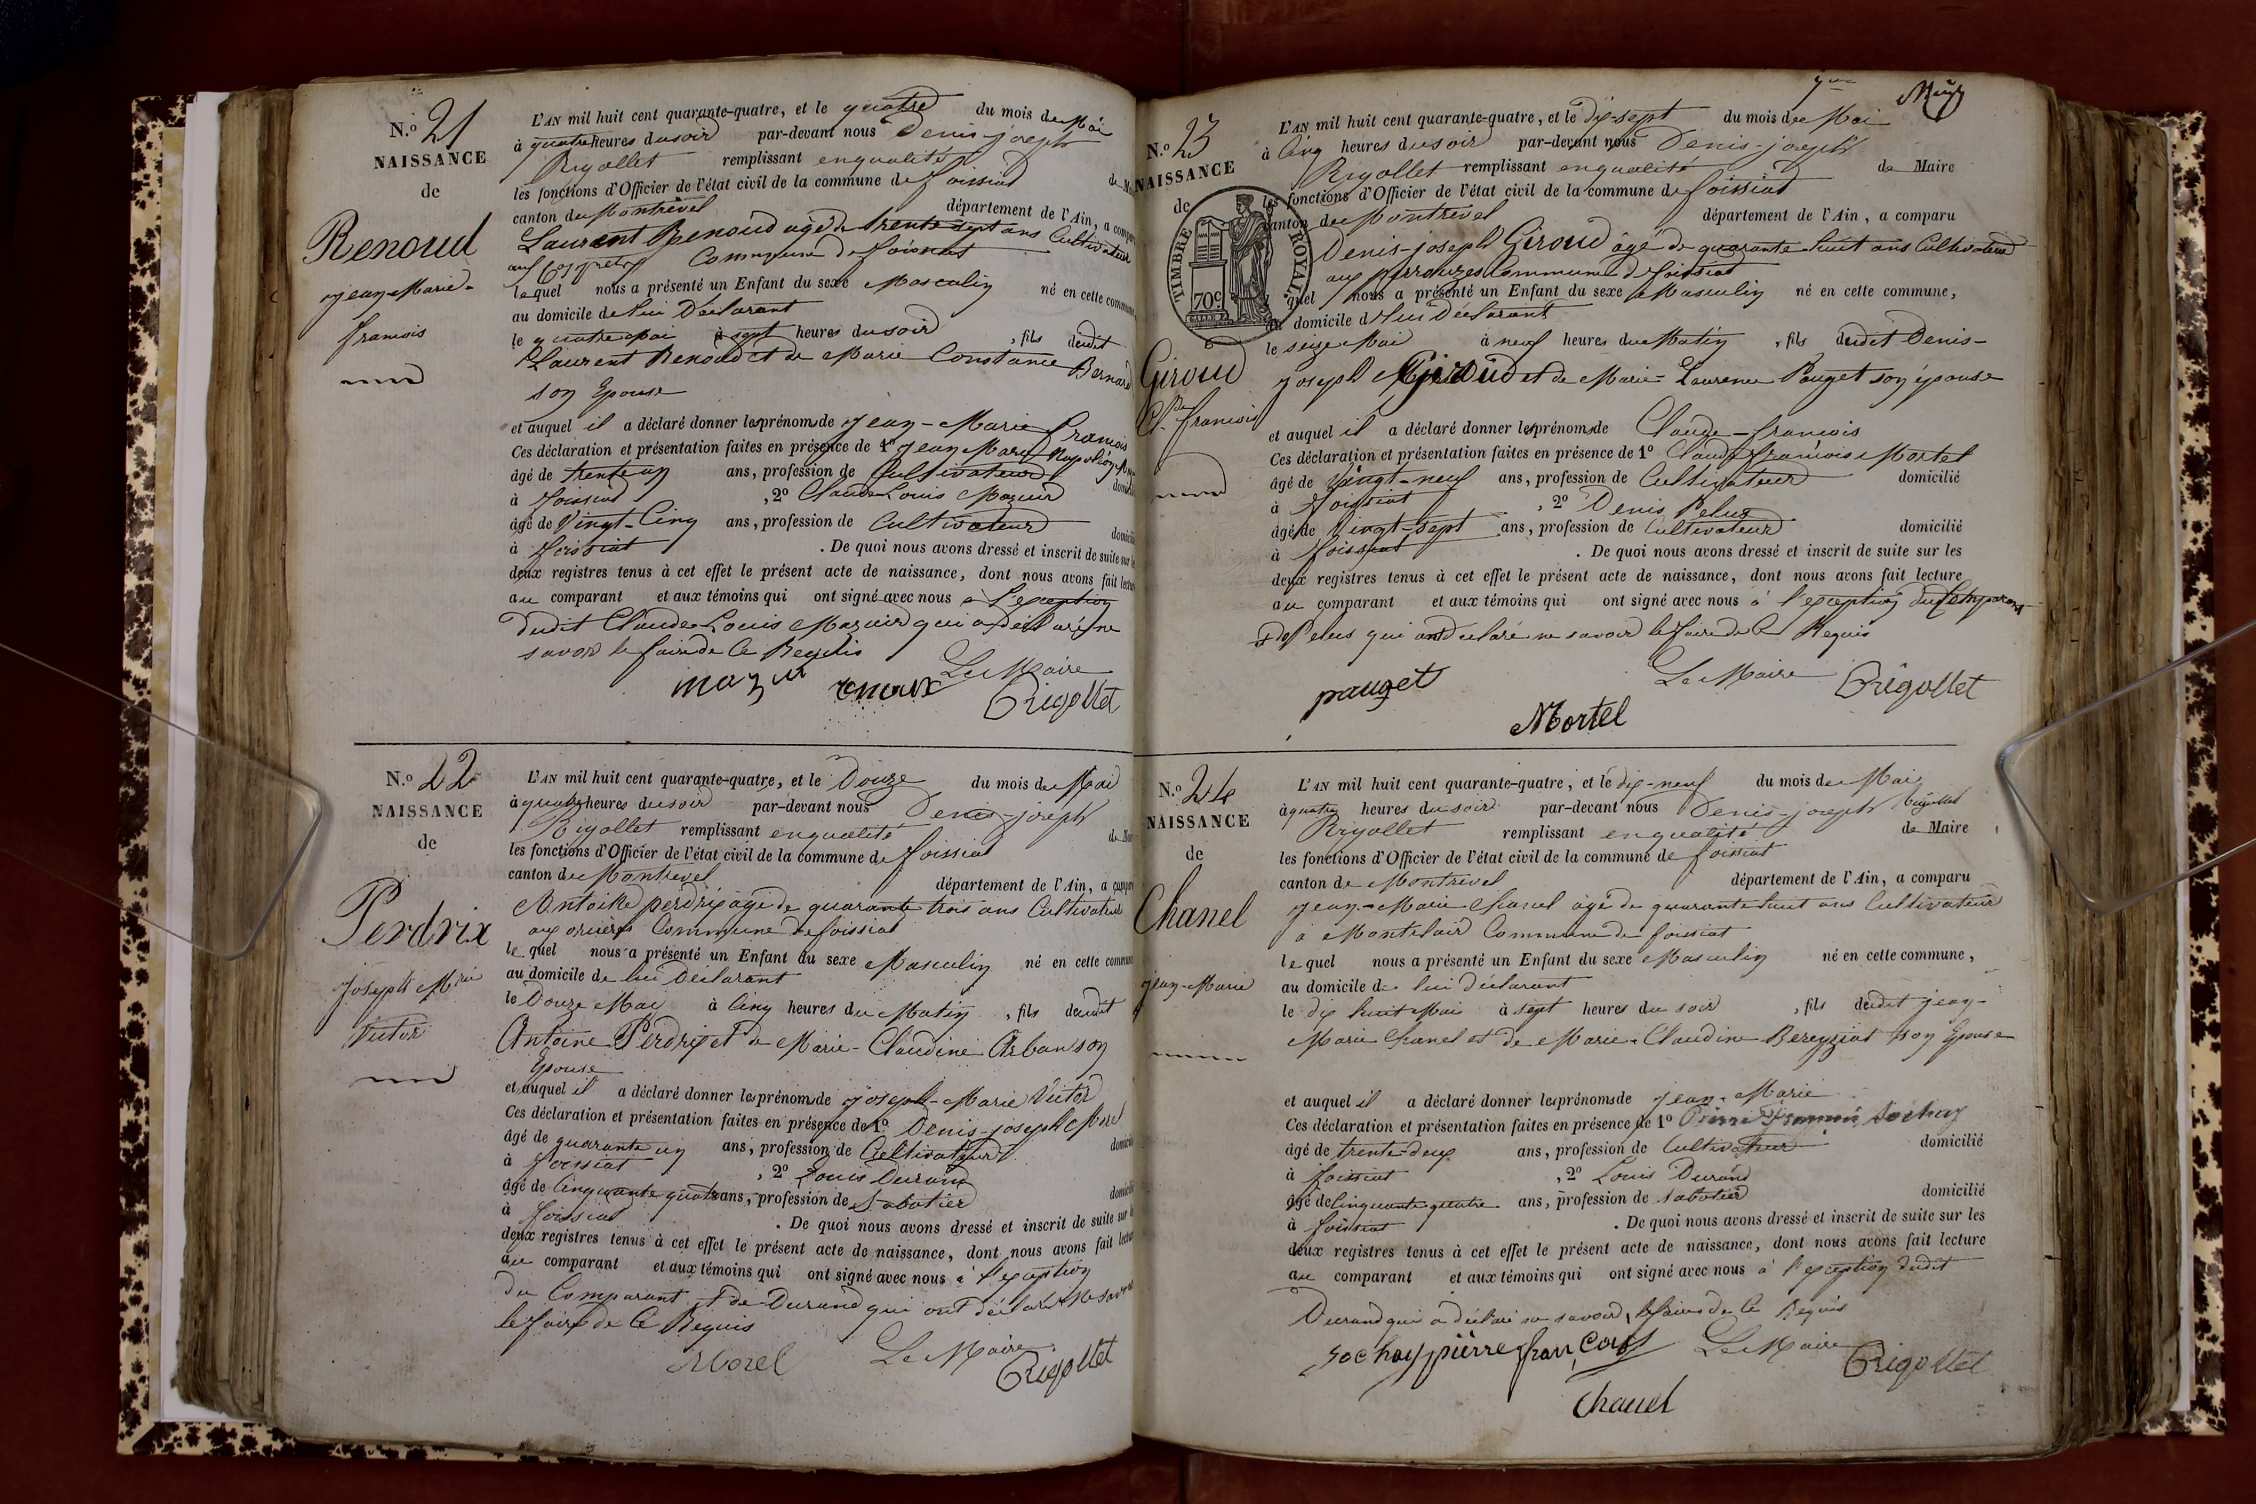 N.o 21
NAISSANCE
de
Renoud
Jean-Marie-
francois
L'AN mil huit cent quarante-quatre, et le quatre du mois de Mai
à quatre heures du soir par-devant nous Denis-joseph
Rigollet remplissant en qualité de M
les fonctions d'Officier de l'état civil de la commune de foissiat
canton de Montrevel département de l'Ain, a compar
Laurent Renoud agé de trente sept ans Cultivateur
aux Commune de foissiat
lequel nous a présenté un Enfant du sexe Masculin né en cette commune,
au domicile de lui Déclarant
le quatre Mai à sept heures du soir , fils dudit
Laurent Renoud et de Marie Constance Bernard
son Epouse
et auquel il a déclaré donner les prénoms de Jean-Marie francois
Ces déclaration et présentation faites en présence de 1o Jean Marie Napoléon
âgé de trente un ans, profession de Cultivateur domicilié
à foissiat , 2o Claude Louis Mazuir
âgé de Vingt-Cinq ans, profession de Cultivateur domicilié
à foissiat . De quoi nous avons dressé et inscrit de suite sur les
deux registres tenus à cet effet le présent acte de naissance, dont nous avons fait lecture
au comparant et aux témoins qui ont signé avec nous à l'exception
dudit Claude Louis Mazuir qui a déclaré ne
savoir le faire de Ce Requis
Le Maire
mazuir Rigollet
N.o 22
NAISSANCE
de
Perdrix
Joseph Mrie
Victor
L'AN mil huit cent quarante-quatre, et le Douze du mois de Mai
à quatre heures du soir par-devant nous Denis-joseph
Rigollet remplissant en qualité de Mai
les fonctions d'Officier de l'état civil de la commune de foissiat
canton de Montrevel département de l'Ain, a compar
Antoine perdrix âgé de quarante trois ans Cultivateur
aux Commune de foissiat
le quel nous a présenté un Enfant du sexe Masculin né en cette commune
au domicile de lui Déclarant
le Douze Mai à Cinq heures du Matin , fils dudit
Antoine Perdrix et de Marie-Claudine Arban son
Epouse
et auquel il a déclaré donner les prénoms de joseph-Marie Victor
Ces déclaration et présentation faites en présence de 1o Denis-joseph Morel
âgé de quarante un ans, profession de Cultivateur domicilié
à foissiat , 2o Louis Durand
âgé de Cinquante quatre ans, profession de Sabotier domicilié
à foissiat . De quoi nous avons dressé et inscrit de suite sur les
deux registres tenus à cet effet le présent acte de naissance, dont nous avons fait lecture
au comparant et aux témoins qui ont signé avec nous à l'exception
du Comparant et de Durand qui ont déclaré ne savoir
le faire de Ce Requis
Morel Le Maire
Rigollet
N.o 23
NAISSANCE
de
TIMBRE ROYAL
70c
Giroud
Cl. francois
L'AN mil huit cent quarante-quatre, et le dix-sept du mois de Mai
à Cinq heures du soir par-devant nous Denis-joseph
Rigollet remplissant en qualité de Maire
les fonctions d'Officier de l'état civil de la commune de foissiat
canton de Montrevel département de l'Ain, a comparu
Denis-joseph Giroud âgé de quarante huit ans Cultivateur
aux Commune de foissiat
lequel nous a présenté un Enfant du sexe Masculin né en cette commune,
au domicile de lui Déclarant
le seize Mai à neuf heures du Matin , fils dudit Denis-
joseph Giroud et de Marie-Laurence Pauget son épouse
et auquel il a déclaré donner les prénoms de Claude-francois
Ces déclaration et présentation faites en présence de 1o Claude francois Mortel
âgé de Vingt-neuf ans, profession de Cultivateur domicilié
à foissiat , 2o Denis Pelus
âgé de Vingt-sept ans, profession de Cultivateur domicilié
à foissiat . De quoi nous avons dressé et inscrit de suite sur les
deux registres tenus à cet effet le présent acte de naissance, dont nous avons fait lecture
au comparant et aux témoins qui ont signé avec nous à l'exception du Comparant
et de Pelus qui ont déclaré ne savoir le faire de Ce Requis
Le Maire
pauget Rigollet
Mortel
N.o 24
NAISSANCE
de
Chanel
Jean-Marie
L'AN mil huit cent quarante-quatre, et le dix-neuf du mois de Mai
à quatre heures du soir par-devant nous Denis-joseph Rigollet
Rigollet remplissant en qualité de Maire
les fonctions d'Officier de l'état civil de la commune de foissiat
canton de Montrevel département de l'Ain, a comparu
Jean-Marie Chanel âgé de quarante huit ans Cultivateur
à Montclair Commune de foissiat
lequel nous a présenté un Enfant du sexe Masculin né en cette commune,
au domicile de lui déclarant
le dix huit Mai à sept heures du soir , fils dudit jean-
Marie Chanel et de Marie-Claudine Bereyziat son Epouse
et auquel il a déclaré donner les prénoms de Jean-Marie
Ces déclaration et présentation faites en présence de 1o Pierre François Sochay
âgé de trente-deux ans, profession de Cultivateur domicilié
à foissiat , 2o Louis Durand
âgé de Cinquante quatre ans, profession de sabotier domicilié
à foissiat . De quoi nous avons dressé et inscrit de suite sur les
deux registres tenus à cet effet le présent acte de naissance, dont nous avons fait lecture
au comparant et aux témoins qui ont signé avec nous à l'exception dudit
Durand qui a déclaré ne savoir le faire de Ce Requis
sochay pierre françois Le Maire
Rigollet
Chanel